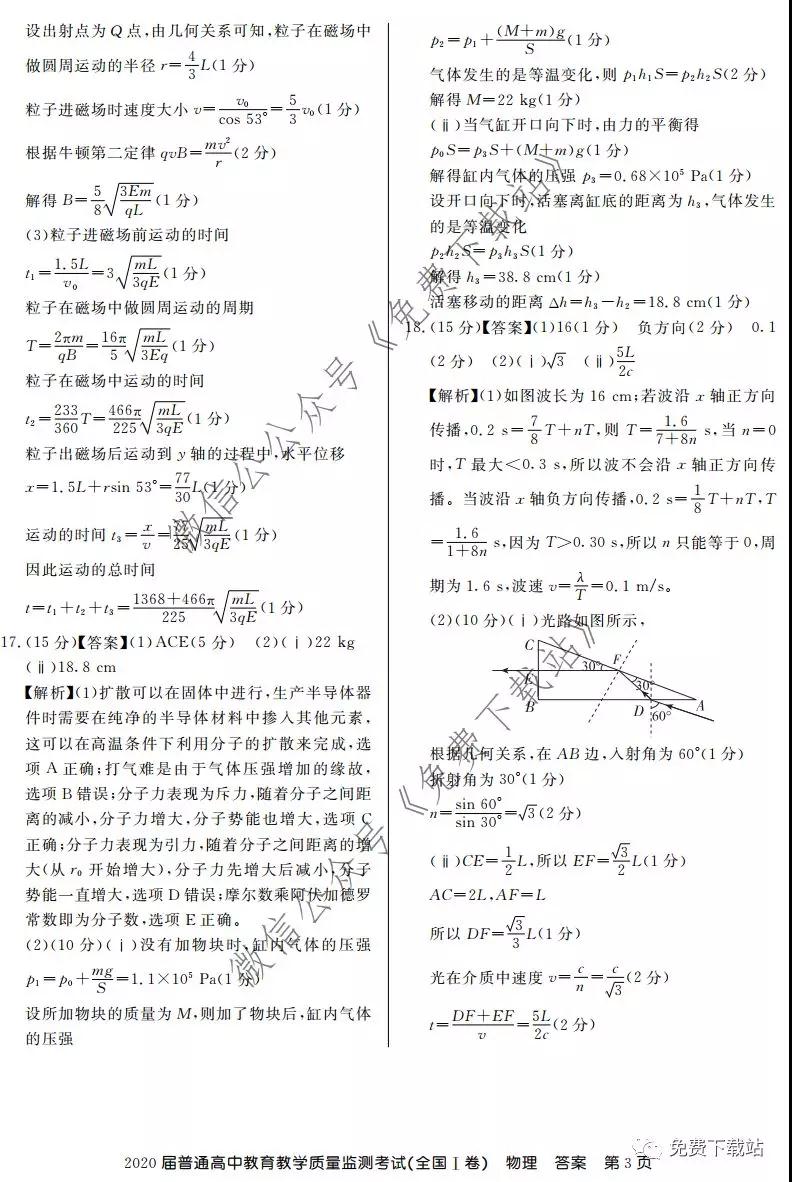 设出射点为Q点,由几何关系可知,粒子在磁场中
做圆周运动的半径 r=4/3L(1分)
粒子进磁场时速度大小 v=v₀/cos 53°=5/3v₀(1分)
根据牛顿第二定律 qvB=mv²/r(2分)
解得 B=5/8√(3Em/qL)(1分)
(3)粒子进磁场前运动的时间
t₁=1.5L/v₀=3√(mL/3qE)(1分)
粒子在磁场中做圆周运动的周期
T=2πm/qB=16π/5√(mL/3Eq)(1分)
粒子在磁场中运动的时间
t₂=233/360T=466π/225√(mL/3qE)(1分)
粒子出磁场后运动到 y 轴的过程中,水平位移
x=1.5L+rsin 53°=77/30L(1分)
运动的时间 t₃=x/v=/25√(mL/3qE)(1分)
因此运动的总时间
t=t₁+t₂+t₃=(1368+466π)/225√(mL/3qE)(1分)
17.(15分)【答案】(1)ACE(5分) (2)(ⅰ)22 kg
(ⅱ)18.8 cm
【解析】(1)扩散可以在固体中进行,生产半导体器
件时需要在纯净的半导体材料中掺入其他元素,
这可以在高温条件下利用分子的扩散来完成,选
项 A 正确;打气难是由于气体压强增加的缘故,
选项 B 错误;分子力表现为斥力,随着分子之间距
离的减小,分子力增大,分子势能也增大,选项 C
正确;分子力表现为引力,随着分子之间距离的增
大(从 r₀ 开始增大),分子力先增大后减小,分子
势能一直增大,选项 D 错误;摩尔数乘阿伏加德罗
常数即为分子数,选项 E 正确。
(2)(10分)(ⅰ)没有加物块时,缸内气体的压强
p₁=p₀+mg/S=1.1×10⁵ Pa(1分)
设所加物块的质量为 M,则加了物块后,缸内气体
的压强
p₂=p₁+(M+m)g/S(1分)
气体发生的是等温变化,则 p₁h₁S=p₂h₂S(2分)
解得 M=22 kg(1分)
(ⅱ)当气缸开口向下时,由力的平衡得
p₀S=p₃S+(M+m)g(1分)
解得缸内气体的压强 p₃=0.68×10⁵ Pa(1分)
设开口向下时,活塞离缸底的距离为 h₃,气体发生
的是等温变化
p₂h₂S=p₃h₃S(1分)
解得 h₃=38.8 cm(1分)
活塞移动的距离 Δh=h₃-h₂=18.8 cm(1分)
18.(15分)【答案】(1)16(1分) 负方向(2分) 0.1
(2分) (2)(ⅰ)√3 (ⅱ)5L/2c
【解析】(1)如图波长为 16 cm;若波沿 x 轴正方向
传播,0.2 s=7/8T+nT,则 T=1.6/(7+8n) s,当 n=0
时,T 最大<0.3 s,所以波不会沿 x 轴正方向传
播。当波沿 x 轴负方向传播,0.2 s=1/8T+nT,T
=1.6/(1+8n) s,因为 T>0.30 s,所以 n 只能等于 0,周
期为 1.6 s,波速 v=λ/T=0.1 m/s。
(2)(10分)(ⅰ)光路如图所示,
C
30° F
E 30°
B D A
60°
根据几何关系,在 AB 边,入射角为 60°(1分)
折射角为 30°(1分)
n=sin 60°/sin 30°=√3(2分)
(ⅱ)CE=1/2L,所以 EF=√3/2L(1分)
AC=2L,AF=L
所以 DF=√3/3L(1分)
光在介质中速度 v=c/n=c/√3(2分)
t=(DF+EF)/v=5L/2c(2分)
微信公众号《免费下载站》
微信公众号《免费下载站》
2020 届普通高中教育教学质量监测考试(全国Ⅰ卷) 物理 答案 第 3 页
免费下载站